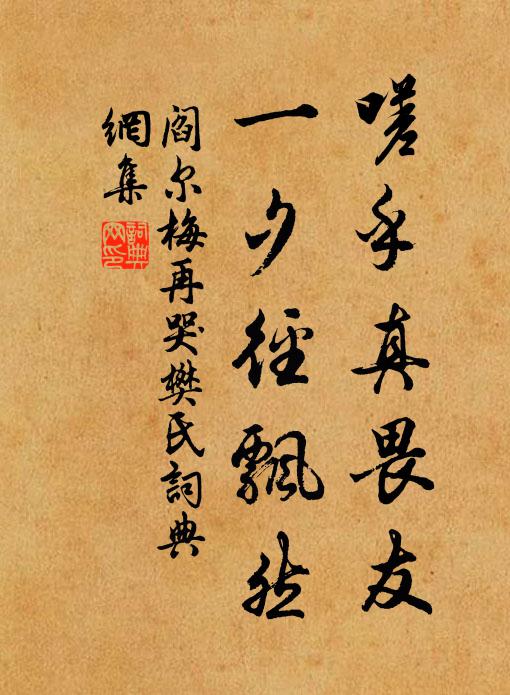 嗟乎真畏友
一夕徑飄然
閻尔梅再哭樊氏詞典
網集
詞典
网印